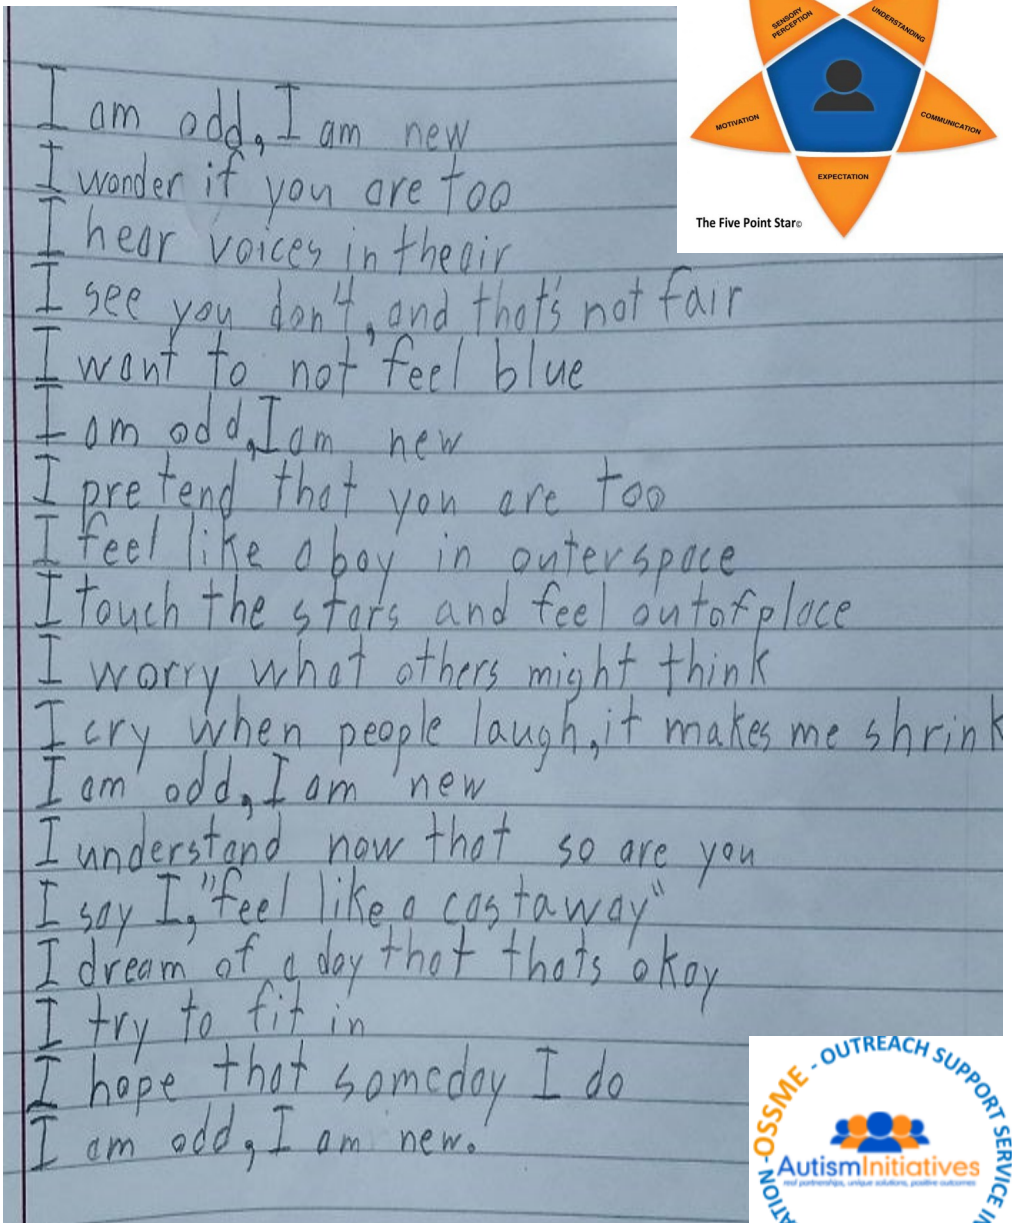 SENSORY
PERCEPTION
UNDERSTANDING
MOTIVATION
COMMUNICATION
EXPECTATION
The Five Point Star©
I am odd, I am new
I wonder if you are too
I hear voices in the air
I see you don't, and that's not fair
I want to not feel blue
I am odd, I am new
I pretend that you are too
I feel like a boy in outerspace
I touch the stars and feel out of place
I worry what others might think
I cry when people laugh, it makes me shrink
I am odd, I am new
I understand now that so are you
I say I, "feel like a castaway"
I dream of a day that thats okay
I try to fit in
I hope that someday I do
I am odd, I am new.
OSSME - OUTREACH SUPPORT SERVICE
AutismInitiatives
real partnerships, unique solutions, positive outcomes